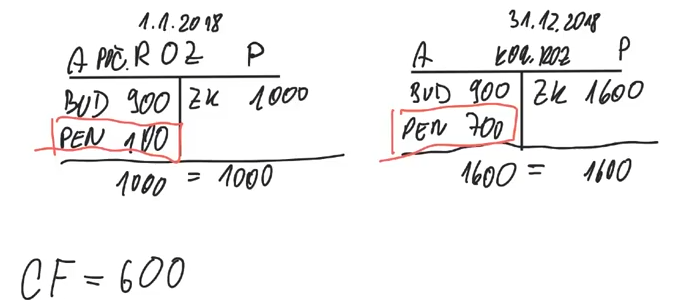 1.1.2018
A POČ. ROZ P
BUD 900 ZK 1000
PEN 100
1000 = 1000
31.12.2018
A KON. ROZ P
BUD 900 ZK 1600
PEN 700
1600 = 1600
CF = 600